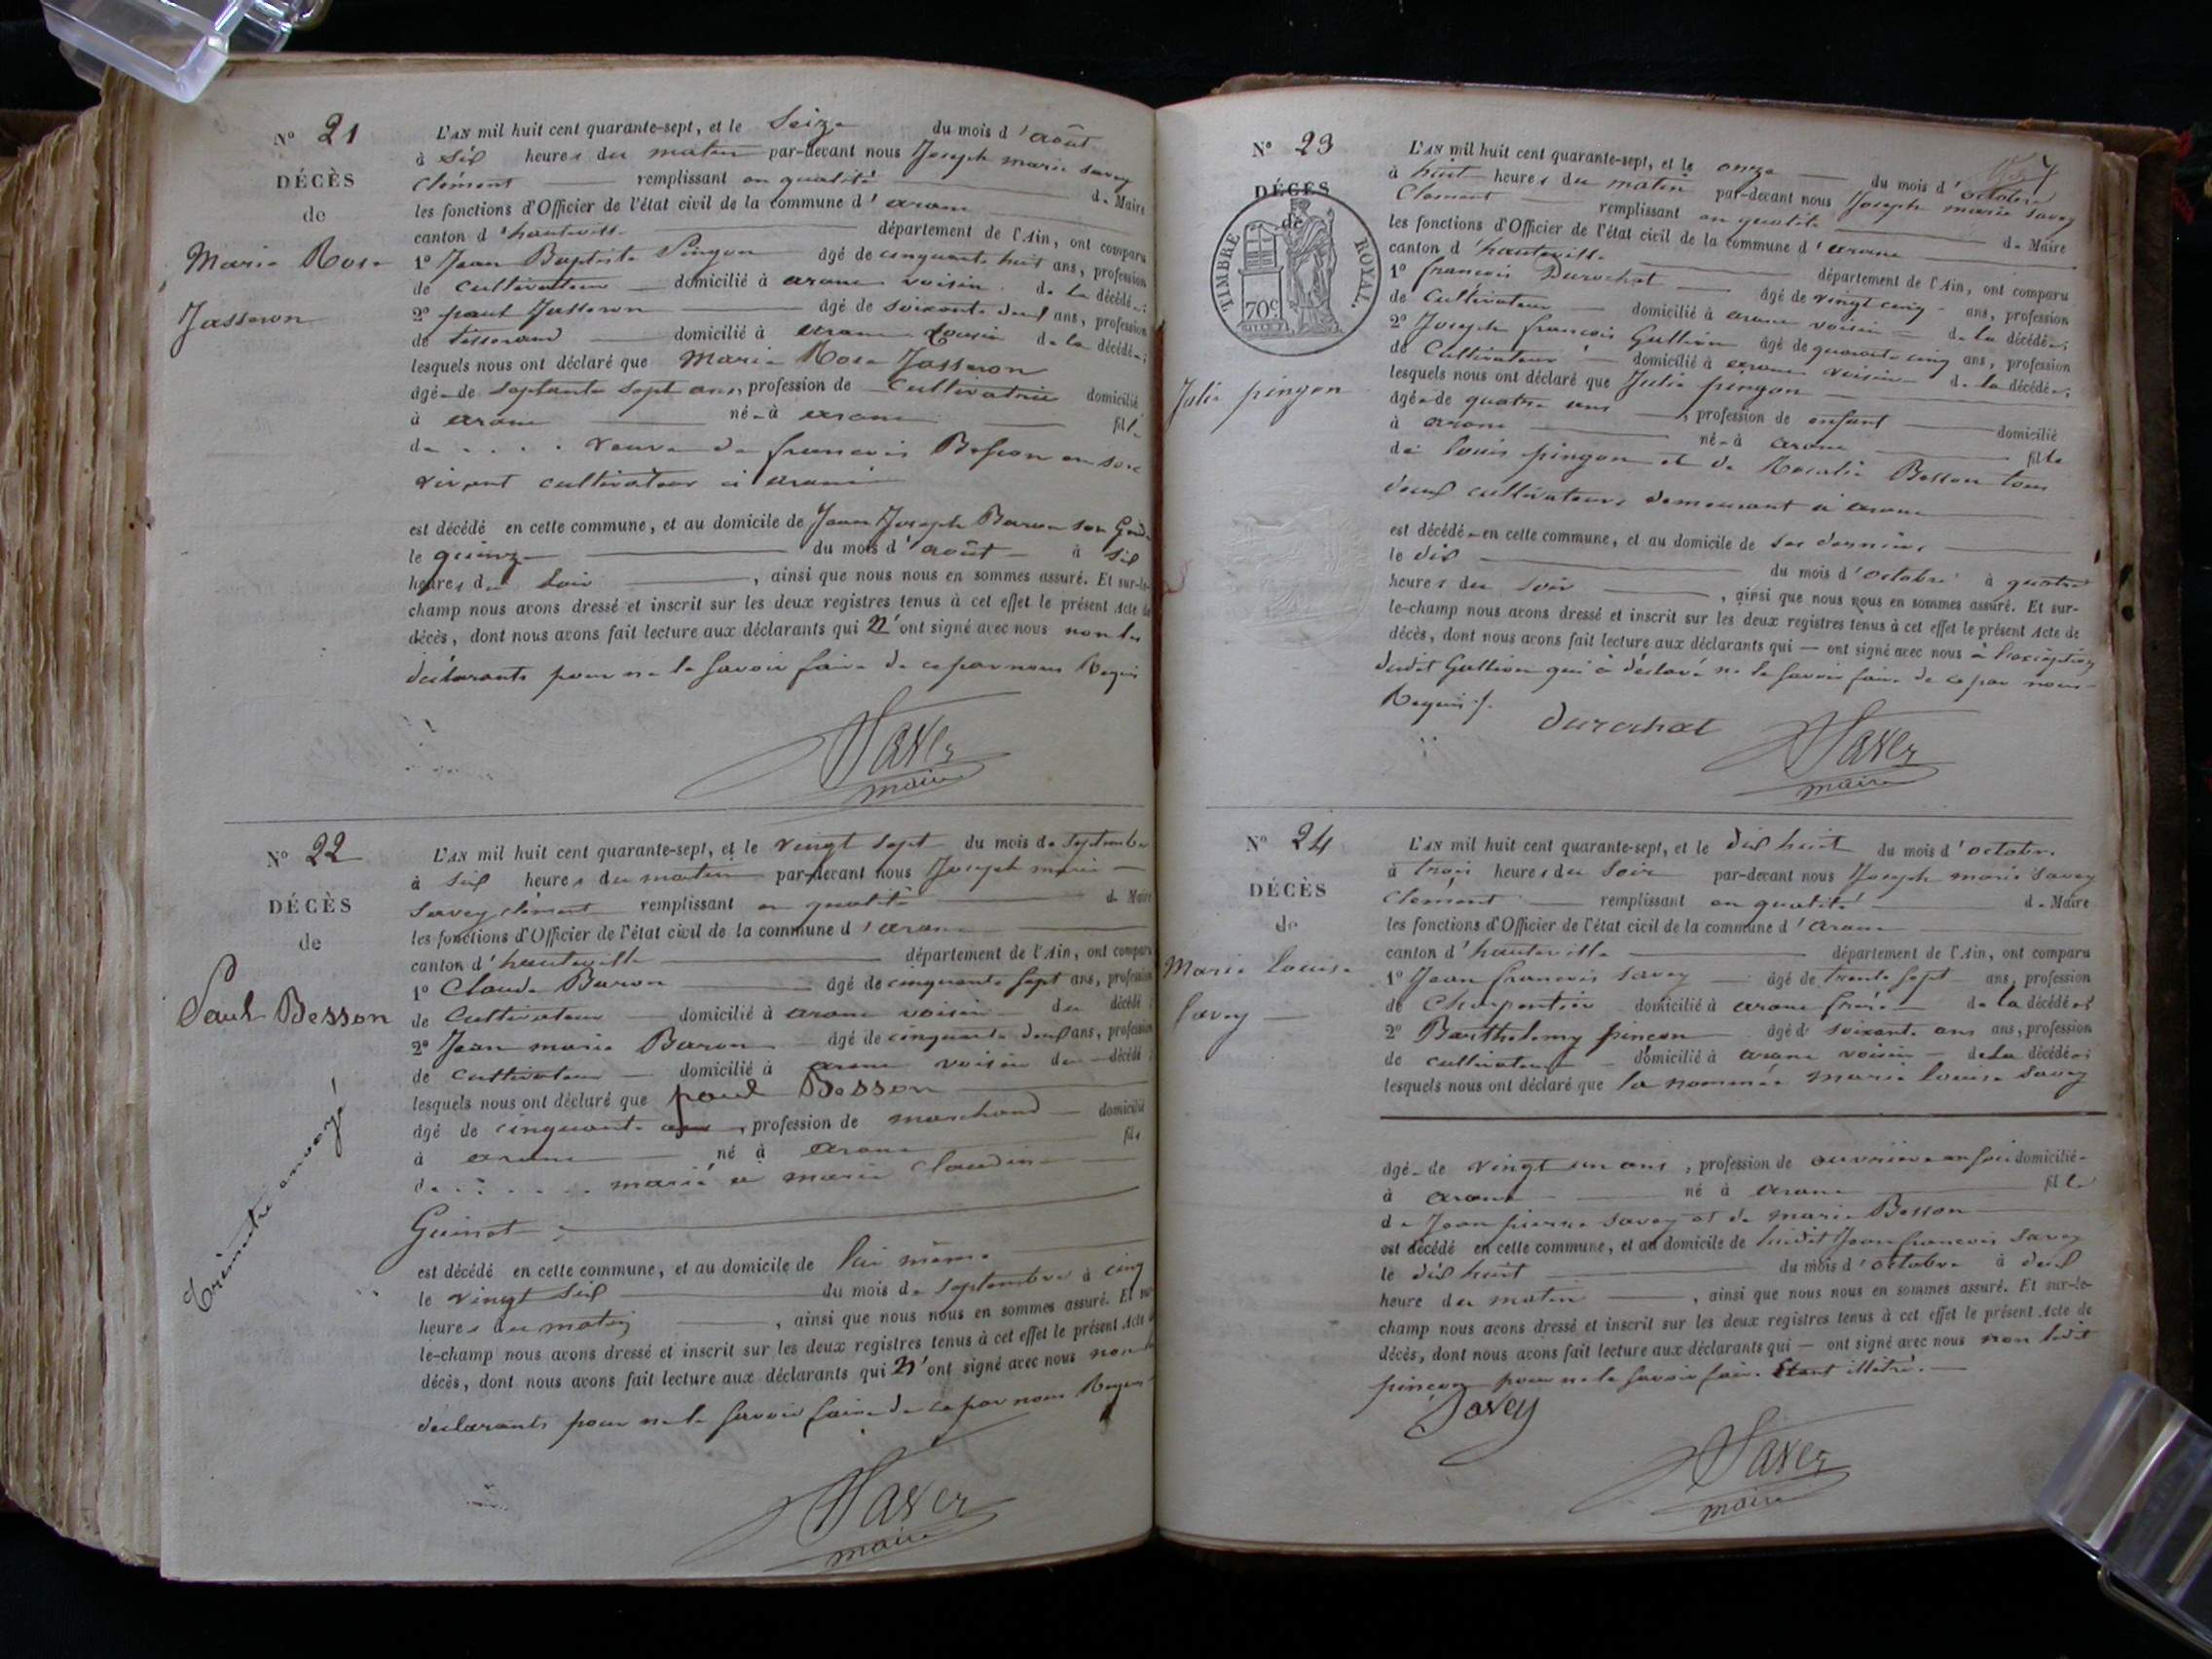 N° 21
DÉCÈS
de
Marie Rose
Jasseron
L'AN mil huit cent quarante-sept, et le Seize du mois d'août
à six heures du matin par-devant nous Joseph marie Savey
Clément remplissant en qualité de Maire
les fonctions d'Officier de l'état civil de la commune d'arane
canton d'hauteville département de l'Ain, ont comparu
1° Jean Baptiste Pingon âgé de cinquante huit ans, profession
de cultivateur domicilié à arane voisin de la décédée;
2° paul Jasseron âgé de soixante deux ans, profession
de tisserand domicilié à arane Cousin de la décédée;
lesquels nous ont déclaré que Marie Rose Jasseron
âgée de septante sept ans, profession de Cultivatrice domicilié
à arane née à arane fille
de . . . . veuve de françois Besson en son
vivant cultivateur à arane
est décédé en cette commune, et au domicile de Jean Joseph Baron son Gendre
le quinze du mois d'août à six
heures du soir , ainsi que nous nous en sommes assuré. Et sur-le-
champ nous avons dressé et inscrit sur les deux registres tenus à cet effet le présent Acte de
décès, dont nous avons fait lecture aux déclarants qui n'ont signé avec nous non les
déclarants pour ne le savoir faire de ce par nous Requis
Savey
maire
N° 22
DÉCÈS
de
Paul Besson
L'AN mil huit cent quarante-sept, et le vingt sept du mois de septembre
à six heures du matin par-devant nous Joseph marie
Savey clément remplissant en qualité de Maire
les fonctions d'Officier de l'état civil de la commune d'arane
canton d'hauteville département de l'Ain, ont comparu
1° Claude Baron âgé de cinquante sept ans, profession
de Cultivateur domicilié à arane voisin du décédé;
2° Jean marie Baron âgé de cinquante deux ans, profession
de cultivateur domicilié à arane voisin du décédé;
lesquels nous ont déclaré que paul Besson
âgé de cinquante ans, profession de marchand domicilié
à arane né à arane fils
de . . . . marié à marie claudine
Guinet
est décédé en cette commune, et au domicile de lui même
le vingt six du mois de septembre à cinq
heures du matin , ainsi que nous nous en sommes assuré. Et sur-
le-champ nous avons dressé et inscrit sur les deux registres tenus à cet effet le présent Acte de
décès, dont nous avons fait lecture aux déclarants qui n'ont signé avec nous non les
déclarants pour ne le savoir faire de ce par nous Requis
Savey
maire
N° 23
DÉCÈS
de
TIMBRE ROYAL.
70c
Julie pingon
L'AN mil huit cent quarante-sept, et le onze du mois d'octobre
à huit heures du matin par-devant nous Joseph marie Savey
Clément remplissant en qualité de Maire
les fonctions d'Officier de l'état civil de la commune d'arane
canton d'hauteville département de l'Ain, ont comparu
1° françois Durochat âgé de vingt cinq ans, profession
de Cultivateur domicilié à arane voisin de la décédée;
2° Joseph françois Gullion âgé de quarante cinq ans, profession
de Cultivateur domicilié à arane voisin de la décédée;
lesquels nous ont déclaré que Julie pingon
âgée de quatre ans , profession de enfant domicilié
à arane née à arane fille
de louis pingon et de Rosalie Besson tous
deux cultivateurs demeurant à arane
est décédée en cette commune, et au domicile de ses derniers
le dix du mois d'octobre à quatre
heures du soir , ainsi que nous nous en sommes assuré. Et sur-
le-champ nous avons dressé et inscrit sur les deux registres tenus à cet effet le présent Acte de
décès, dont nous avons fait lecture aux déclarants qui — ont signé avec nous à l'exception
dudit Gullion qui a déclaré ne le savoir faire de ce par nous
Requis
durochat
Savey
maire
N° 24
DÉCÈS
de
Marie louise
Savey
L'AN mil huit cent quarante-sept, et le dix huit du mois d'octobre
à trois heures du soir par-devant nous Joseph marie Savey
Clément remplissant en qualité de Maire
les fonctions d'Officier de l'état civil de la commune d'arane
canton d'hauteville département de l'Ain, ont comparu
1° Jean françois Savey âgé de trente sept ans, profession
de Charpentier domicilié à arane frère de la décédée;
2° Barthelemy pinçon âgé de soixante ans ans, profession
de cultivateur domicilié à arane voisin de la décédée;
lesquels nous ont déclaré que la nommée marie louise Savey
âgée de vingt un ans , profession de ouvrière en soie domiciliée
à arane né à arane fille
de Jean pierre Savey et de marie Besson
est décédé en cette commune, et au domicile de ludit Jean françois Savey
le dix huit du mois d'octobre à deux
heure du matin , ainsi que nous nous en sommes assuré. Et sur-le-
champ nous avons dressé et inscrit sur les deux registres tenus à cet effet le présent Acte de
décès, dont nous avons fait lecture aux déclarants qui — ont signé avec nous non ledit
pinçon pour ne le savoir faire Etant illétré.
Savey
Savey
maire